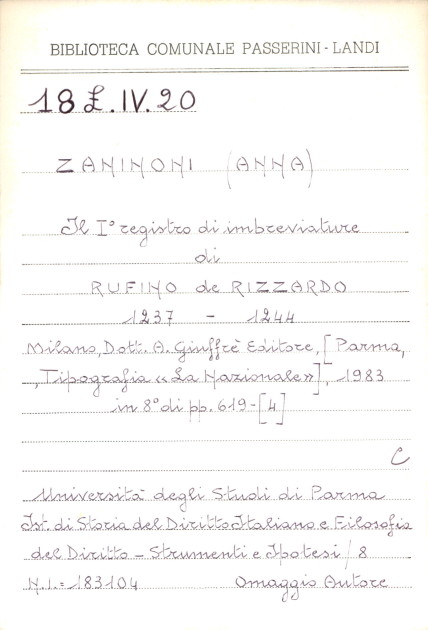 BIBLIOTECA COMUNALE PASSERINI - LANDI
18 £.IV.20
ZANINONI (ANNA)
Il I° registro di imbreviature
di
RUFINO de RIZZARDO
1237 - 1244
Milano, Dott. A. Giuffrè Editore, [Parma,
, Tipografia «La Nazionale»], 1983
in 8° di pp. 619-[4]
C
Università degli Studi di Parma
Ist. di Storia del Diritto Italiano e Filosofia
del Diritto - Strumenti e Ipotesi / 8
N.I.= 183104 Omaggio Autore